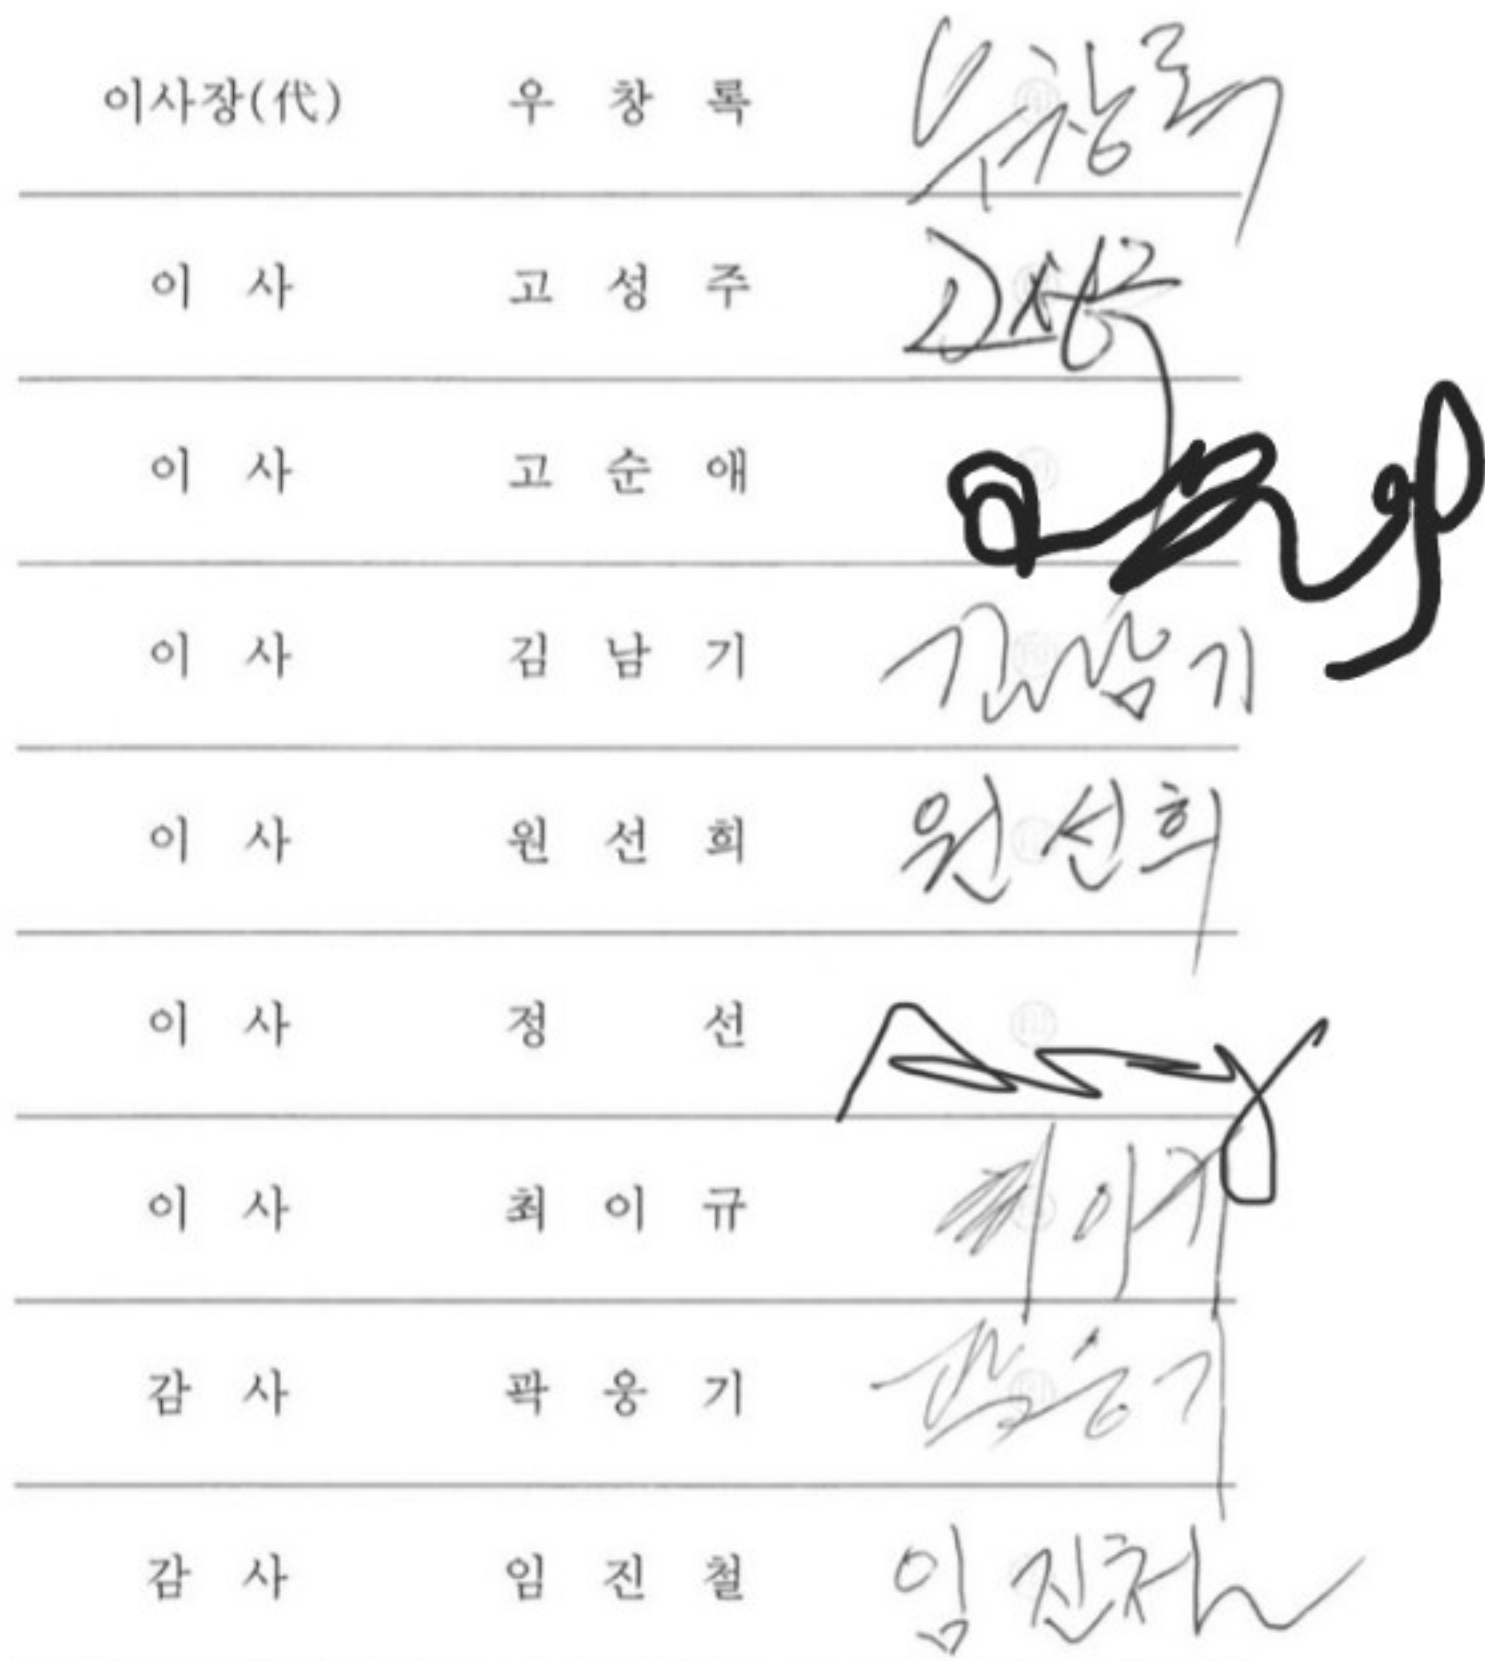 이사장(代) 우 창 록 우창록
이 사 고 성 주 고성주
이 사 고 순 애
이 사 김 남 기 김남기
이 사 원 선 희 원선희
이 사 정 선
이 사 최 이 규 최이규
감 사 곽 웅 기 곽웅기
감 사 임 진 철 임진철